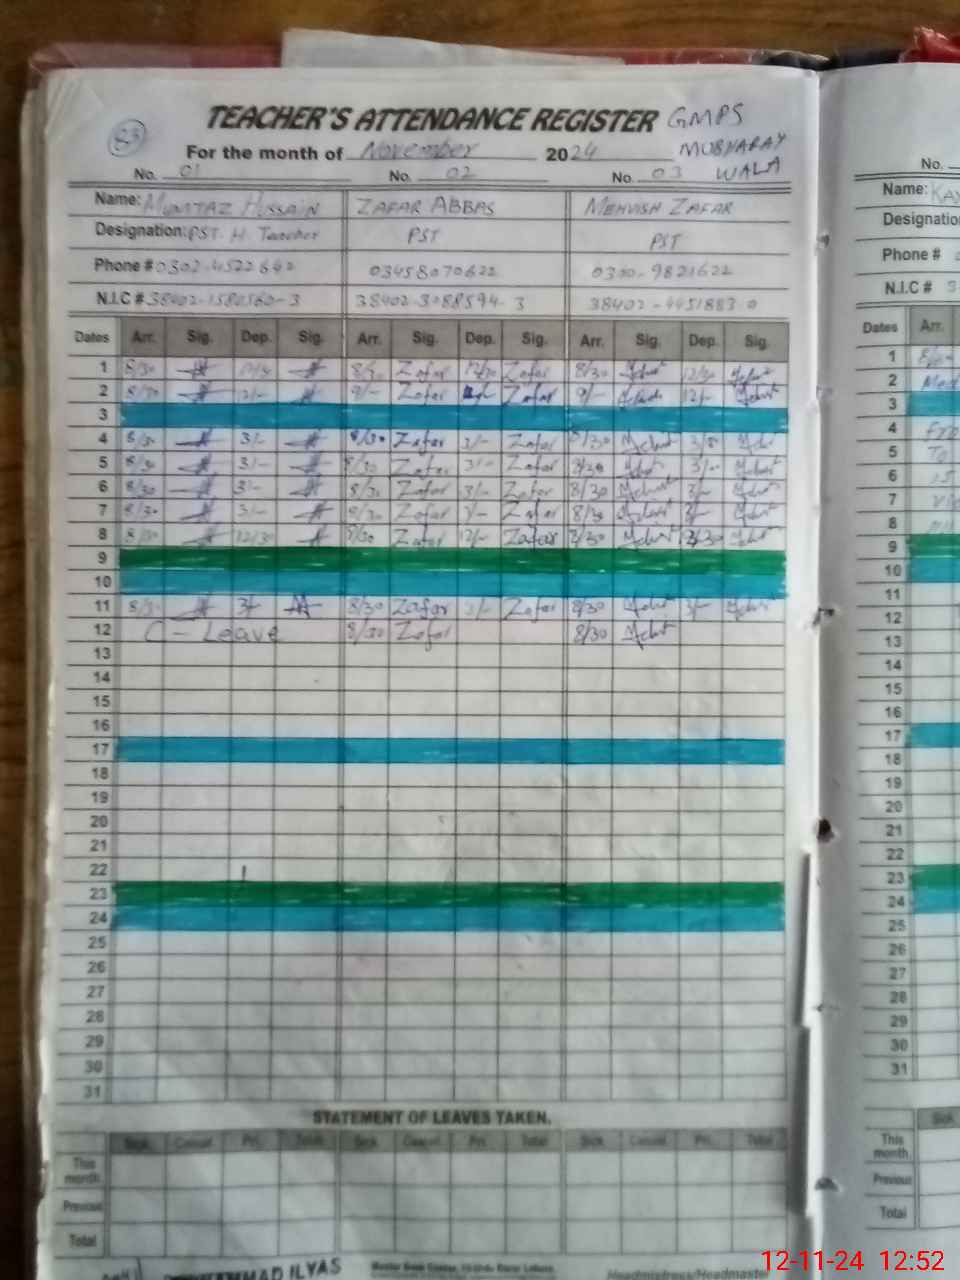 83
TEACHER'S ATTENDANCE REGISTER GMPS
For the month of November 2024 MOBYARAY
No. 01 No. 02 No. 03 WALA No.
Name: MUMTAZ HUSSAIN ZAFAR ABBAS MEHVISH ZAFAR Name:
Designation: PST. H. Teacher PST PST
Phone # 0302-4522642 03458070622 0300-9821622 Phone #
N.I.C # 38402-1580560-3 38402-3088594-3 38402-4451883 0 N.I.C #
Dates Arr. Sig. Dep. Sig. Arr. Sig. Dep. Sig. Arr. Sig. Dep. Sig. Dates Arr.
1 8/30 Zafar 12/30 Zafar 8/30 12/30 1
2 8/30 12/- 9/- Zafar Zafar 9/- 12/- 2
3 3
4 8/30 3/- 8/30 Zafar 3/- Zafar 8/30 4
5 8/30 3/- 8/30 Zafar 3/- Zafar 8/30 3/- 5
6 8/30 3/- 8/30 Zafar 3/- Zafar 8/30 3/- 6
7 8/30 3/- 8/30 Zafar 3/- Zafar 8/30 7
8 8/30 12/30 8/30 Zafar 12/- Zafar 8/30 12/30 8
9 9
10 10
11 8/30 3/- 8/30 Zafar 3/- Zafar 8/30 3/- 11
12 C - Leave 8/30 Zafar 8/30 12
13 13
14 14
15 15
16 16
17 17
18 18
19 19
20 20
21 21
22 22
23 23
24 24
25 25
26 26
27 27
28 28
29 29
30 30
31 31
STATEMENT OF LEAVES TAKEN.
Sick Casual Pri. Total Sick Casual Pri. Total Sick Casual Pri. Total Sick
This month This month
Previous Previous
Total Total
ILYAS Headmistress/Headmaster
12-11-24 12:52